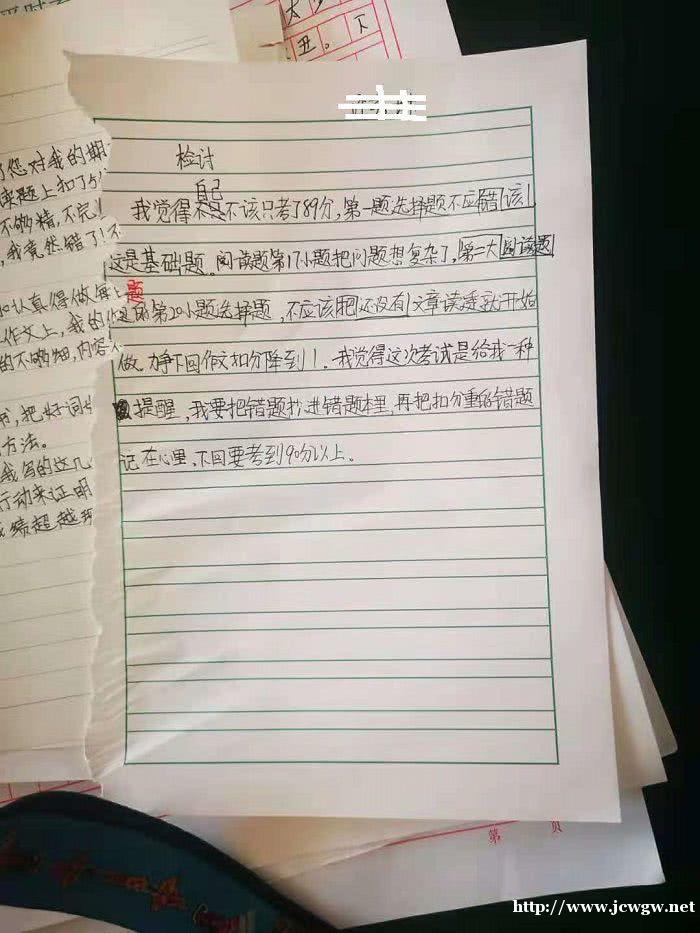 太
丑。下
检讨
自己
我觉得不是不该只考了89分,第一题选择题不应错该
这是基础题。阅读题第17小题把问题想复杂了,第二大阅读题
的第20小题选择题,不应该把还没有文章读透就开始
做。争下回作文扣分降到1。我觉得这次考试是给我一种
提醒,我要把错题抄进错题本里,再把扣分重的错题
记在心里,下回要考到90分以上。
了您对我的期
读题上扣了5
不够精,不完
,我竟然错了!不
认真得做每
题
作文上,我的
的不够细,内容
书,把好词
方法。
我写的这几
行动来证明
绩超越
第 页
http://www.jcwgw.net